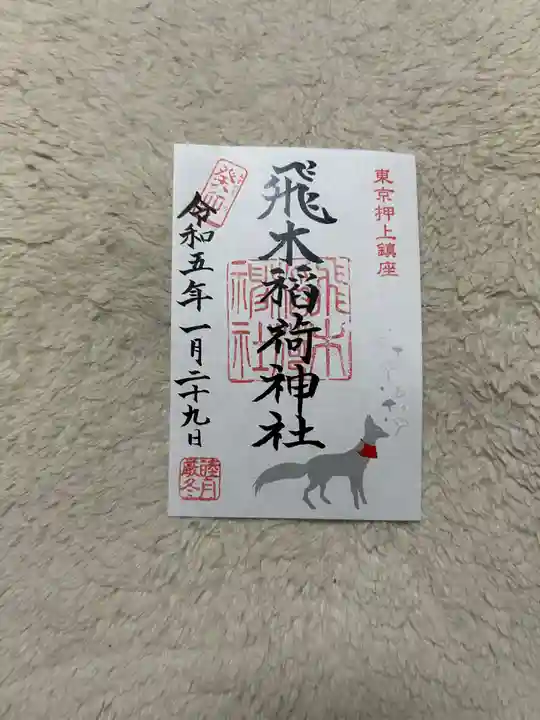 東京押上鎮座
飛木稲荷神社
飛木稲荷神社
癸卯
令和五年一月二十九日
睦月
厳冬